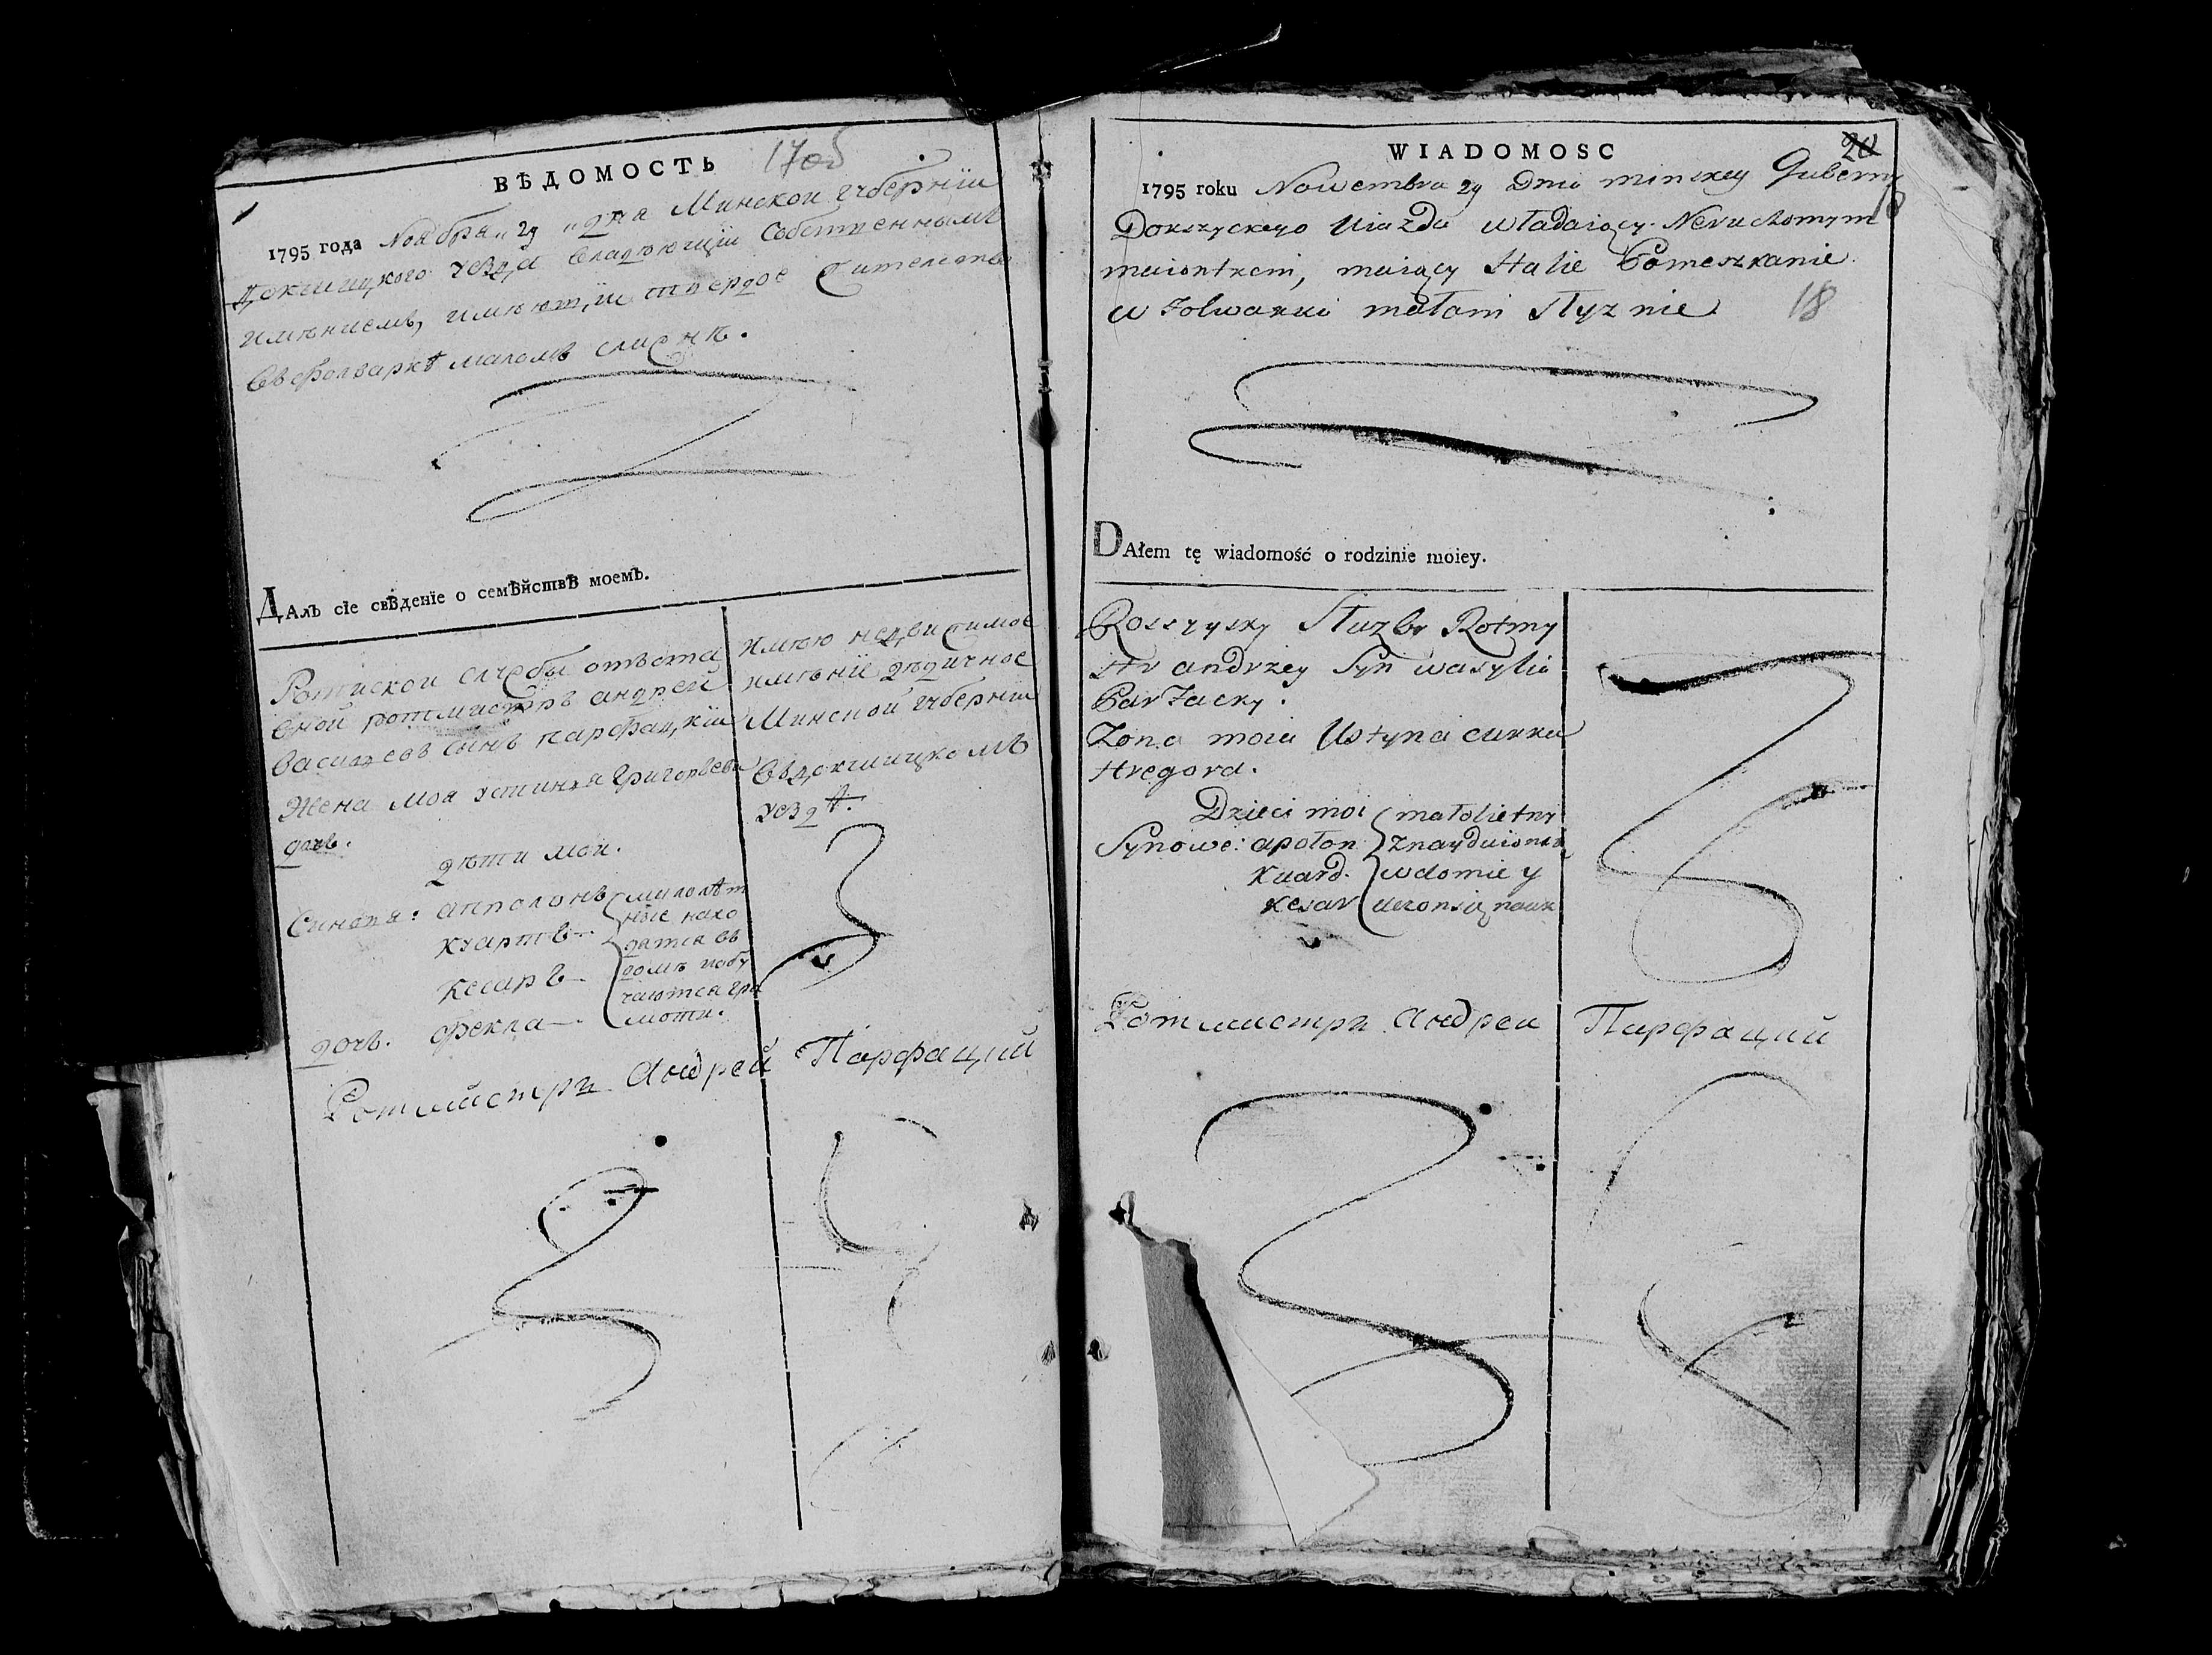 ВѢДОМОСТЬ 17об
1795 года Ноября 29 дня Минской губернїи
Докшицкого уезда владеющїй собственнымъ
имѣниемъ, имѣющїй твердое жителство
въ фолваркѣ маломъ слизнѣ.
ДАлъ сїе свѢденїе о семѢйствѢ моемъ.
Ротиской службы отъста
вной ротмистръ андрей
васильевъ сынъ парфацкїй
Жена моя устинья Григорьева
дочь.
дѣти мои.
Синовя: апполонъ
куартъ
кесаръ
малолѣт
ные нахо
дятся въ
домѣ иобу
чаются гра
моти.
дочь. фекла
имѣю недвижимое
имѣнїе дѣдичное
Минской губернїи
въ докшицкомъ
уездѣ.
Ротмистръ Андрей Парфацкий
WIADOMOSC 20
1795 roku Nowembra 29 Dnia minskey Guberny
18
Dokszyckego Uiazdu władaiący Neruchomym
maiontkem, maiący Stałe Pomeszkanie
w Folwarku małam slyznie 18
DAłem tę wiadomość o rodzinie moiey.
Rosszysky Służby Rotmy
str andrzey Syn wasylia
Parfacky.
Zona moia Ustyna curka
Hregora.
Dzieci moi
Synowe: apołon
Kuard.
Kesar
małoletny
znayduionsę
wdomie y
uczonsię nauk
Ротмистръ Андрей Парфацкий